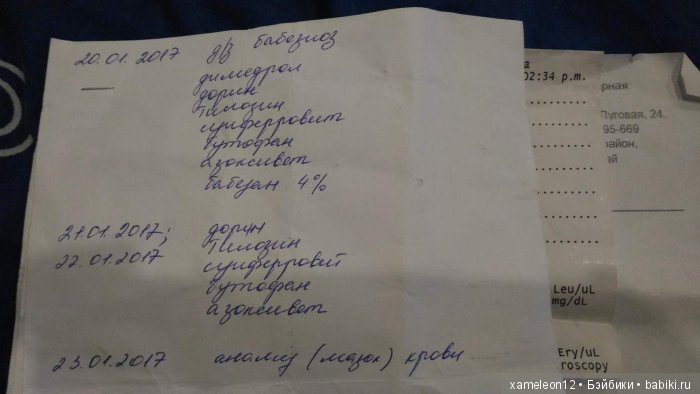 20.01.2017 д/з бабезиоз
димедрол
дорин
тилозин
цуиферровит
бутофан
азоксивет
бабезан 4%
21.01.2017; дорин
22.01.2017 тилозин
цуиферровит
бутофан
азоксивет
23.01.2017 анализ (мазок) крови
а
02:34 p.m.
рная
Луговая, 24.
95-669
район,
ай
Leu/uL
mg/dL
Ery/uL
roscopy
xameleon12 • Бэйбики • babiki.ru